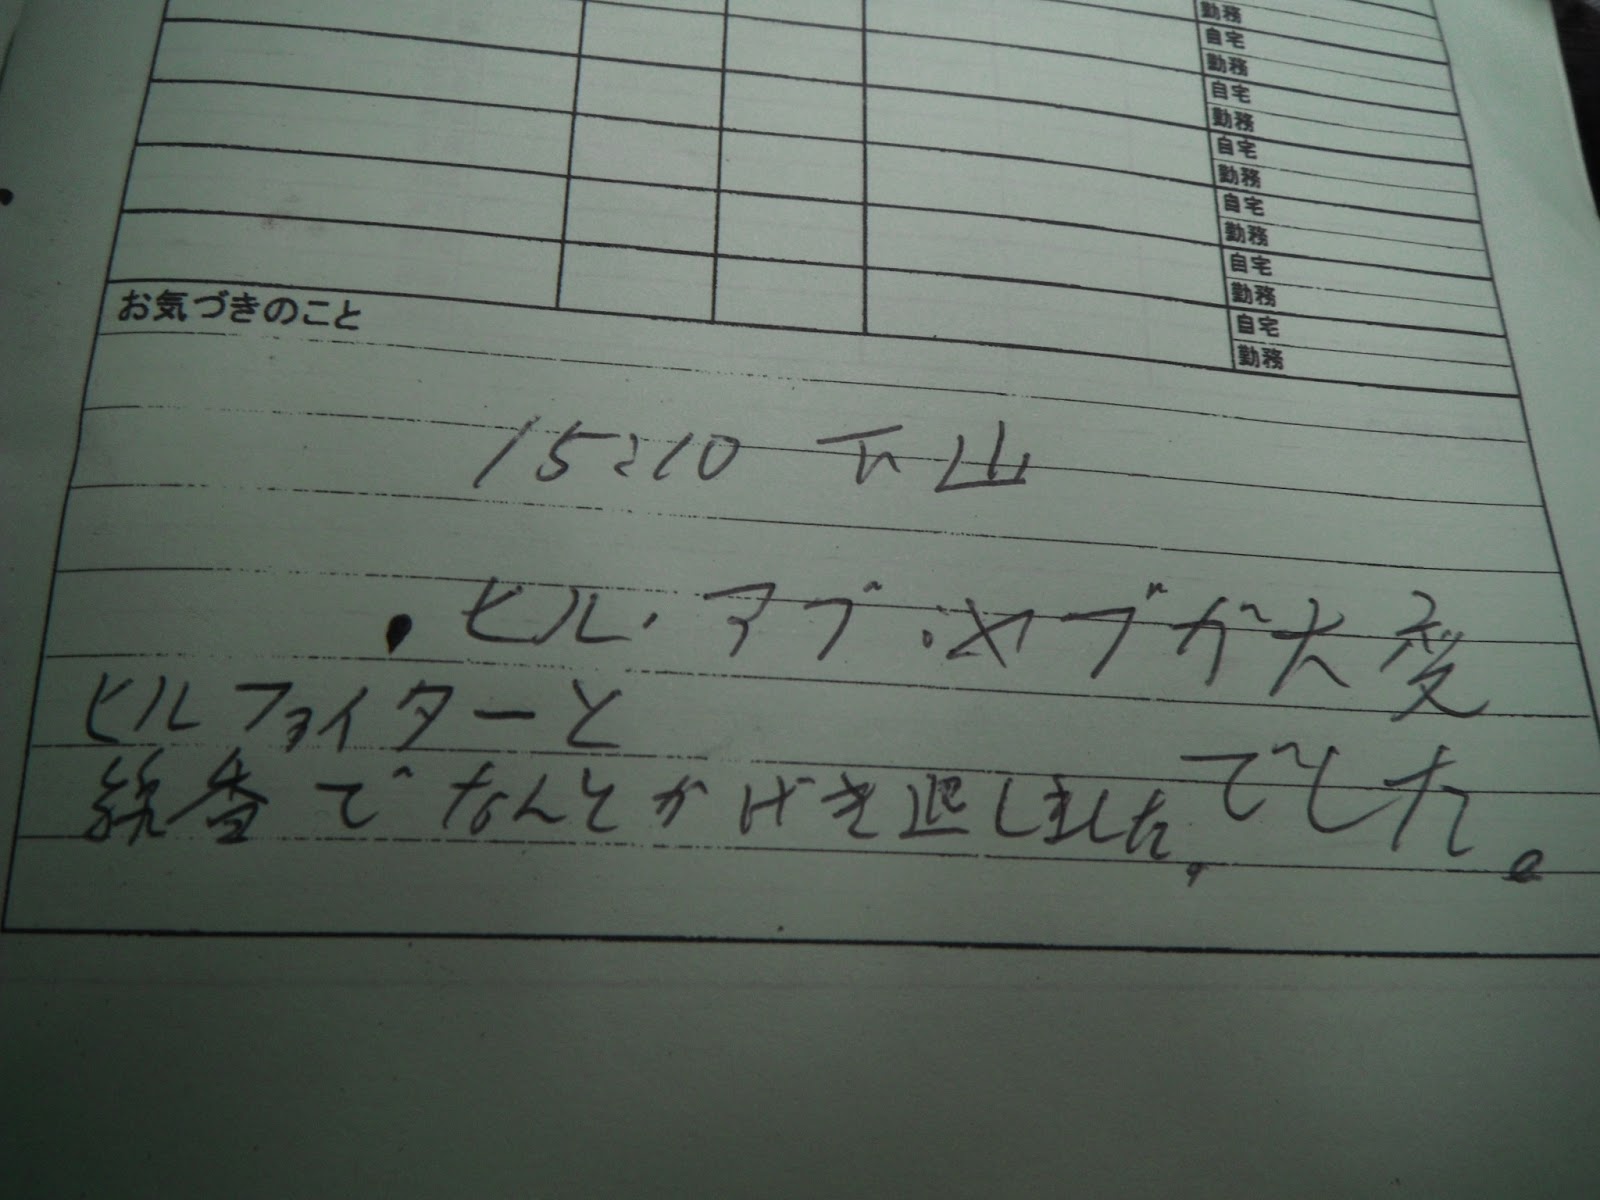 勤務
自宅
勤務
自宅
勤務
自宅
勤務
自宅
勤務
自宅
勤務
自宅
勤務
お気づきのこと
15:10 下山
・ヒル・アブ・ヤブが大変
でした。
ヒルファイターと
線香でなんとかげき退しました。